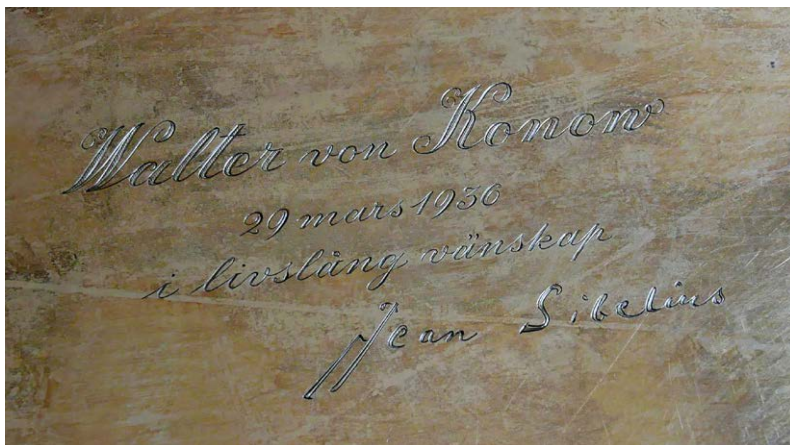 Walter von Konow
29 mars 1936
i livslång vänskap
Jean Sibelius